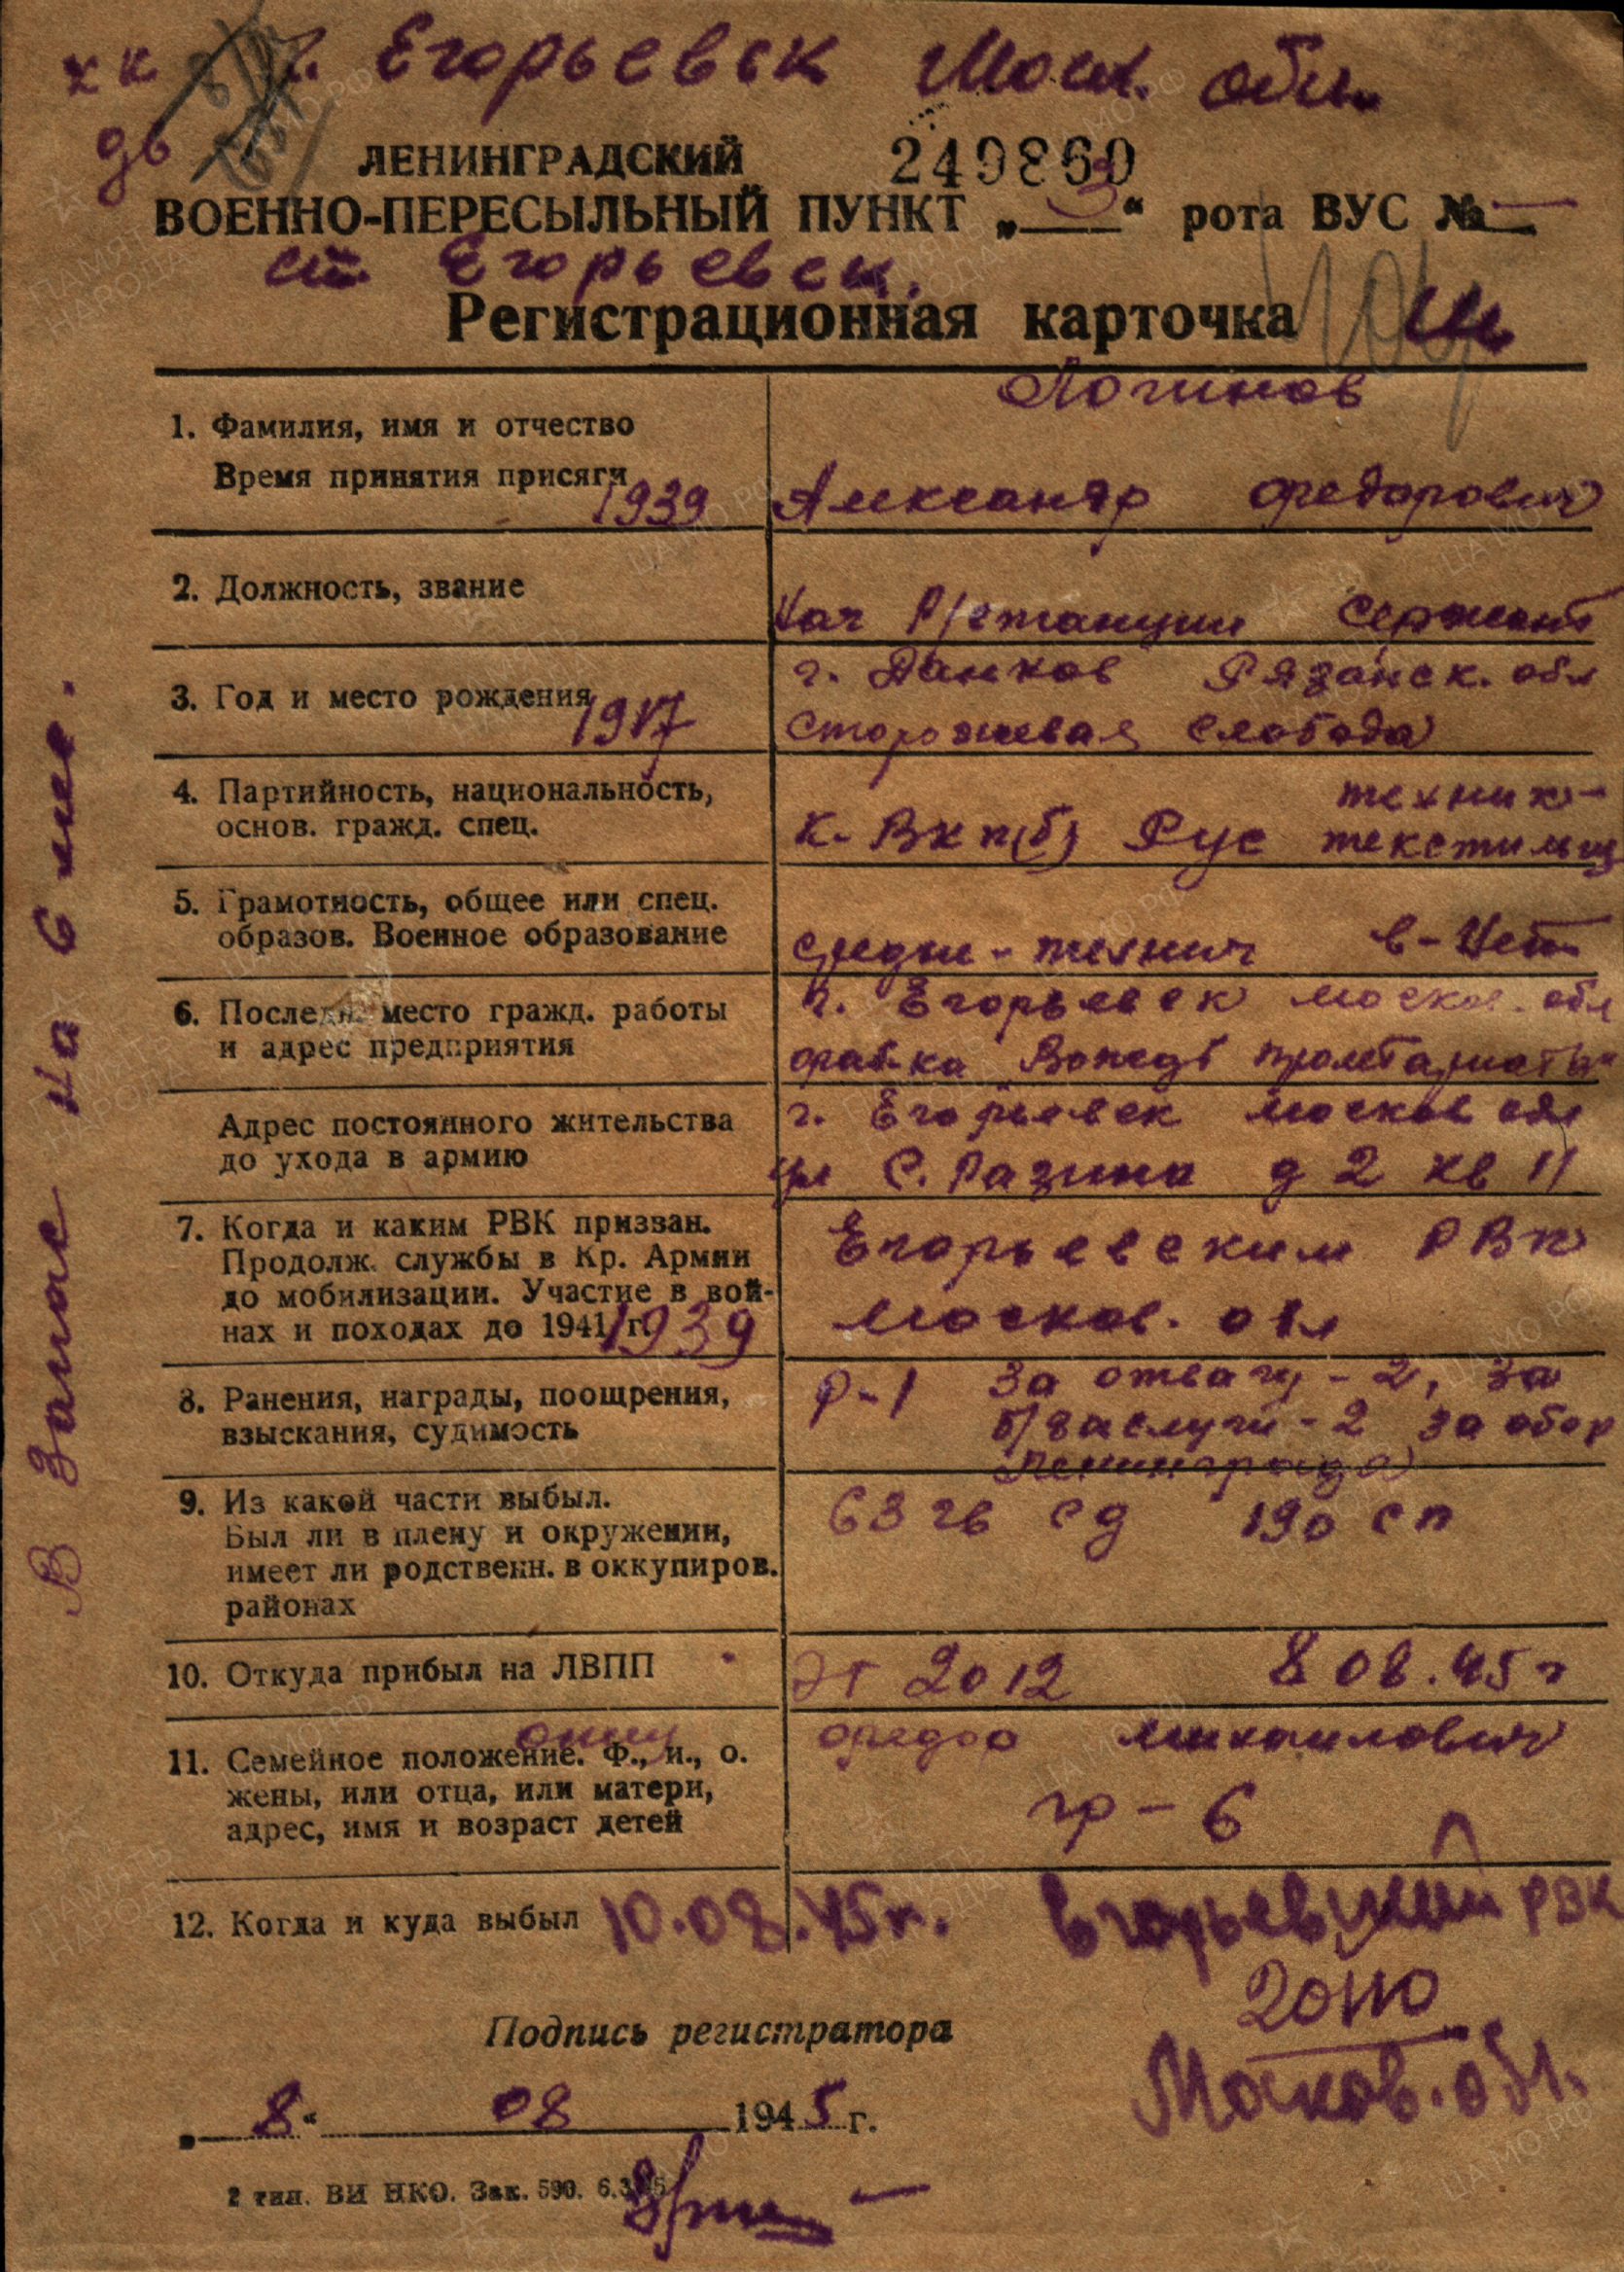 г. Егорьевск Моск. обл.
хк
дв
ЛЕНИНГРАДСКИЙ 249860
ВОЕННО-ПЕРЕСЫЛЬНЫЙ ПУНКТ „ 3 “ рота ВУС № —
ст. Егорьевск.
Регистрационная карточка
1. Фамилия, имя и отчество
Время принятия присяги 1939
Логинов
Александр Федорович
2. Должность, звание
Нач Р/станции Сержант
3. Год и место рождения 1917
г. Данков Рязанск. обл
Сторожевая слобода
4. Партийность, национальность,
основ. гражд. спец.
техник-
к. ВКП(б) Рус текстильщ
5. Грамотность, общее или спец.
образов. Военное образование
средне-технич в-Нет
6. Последн. место гражд. работы
и адрес предприятия
г. Егорьевск москов. обл
фабрка Вождь пролетариата
Адрес постоянного жительства
до ухода в армию
г. Егорьевск москов обл
ул С. Разина д 2 кв 11
7. Когда и каким РВК призван.
Продолж. службы в Кр. Армии
до мобилизации. Участие в вой-
нах и походах до 1941 г. 1939
Егорьевским РВК
москов. обл
8. Ранения, награды, поощрения,
взыскания, судимость
Р-1 За отвагу - 2, за
б/заслуги - 2 за обор
Ленинграда
9. Из какой части выбыл.
Был ли в плену и окружении,
имеет ли родственн. в оккупиров.
районах
63 гв сд 190 сп
10. Откуда прибыл на ЛВПП
Эт 2012 8 08.45 г
11. Семейное положение. Ф., и., о.
жены, или отца, или матери,
адрес, имя и возраст детей
отец
Федор Михаилович
гр - 6
12. Когда и куда выбыл 10.08.45 г. Егорьевский РВК
Москов. обл.
Подпись регистратора
„ 8 “ 08 1945 г.
2 тип. ВИ НКО. Зак. 590.
В Запас на 6 мес.
ПАМЯТЬ НАРОДА
ЦАМО РФ